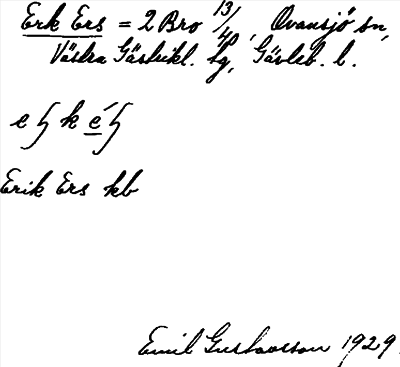 Erk Ers = 2 Bro 13/40, Ovansjö sn,
Västra Gästrikl. tg, Gävleb. l.
Erik Ers kb
Emil Gustavsson 1929.